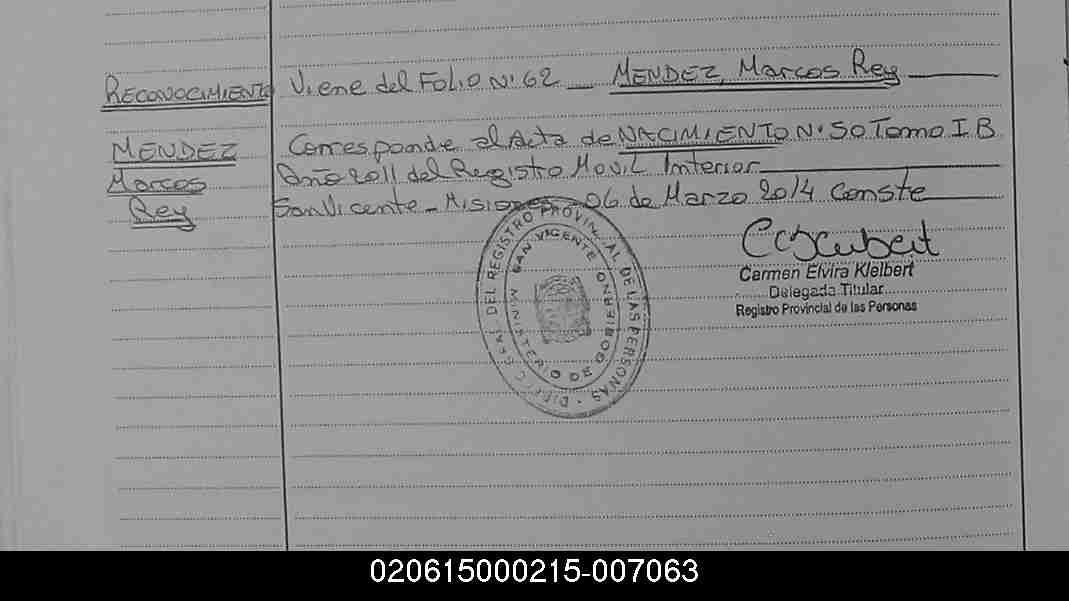 RECONOCIMIENTO
MENDEZ
Marcos
Rey
Viene del Folio N° 62 _ MENDEZ, Marcos Rey
Corresponde al Acta de NACIMIENTO N° 50 Tomo I B
Año 2011 del Registro Movil Interior
San Vicente - Misiones 06 de Marzo 2014 Conste
Carmen Elvira Kleibert
Delegada Titular
Registro Provincial de las Personas
DIREC. GRAL. DEL REGISTRO PROVINCIAL DE LAS PERSONAS
MINISTERIO DE GOBIERNO
SAN VICENTE
020615000215-007063